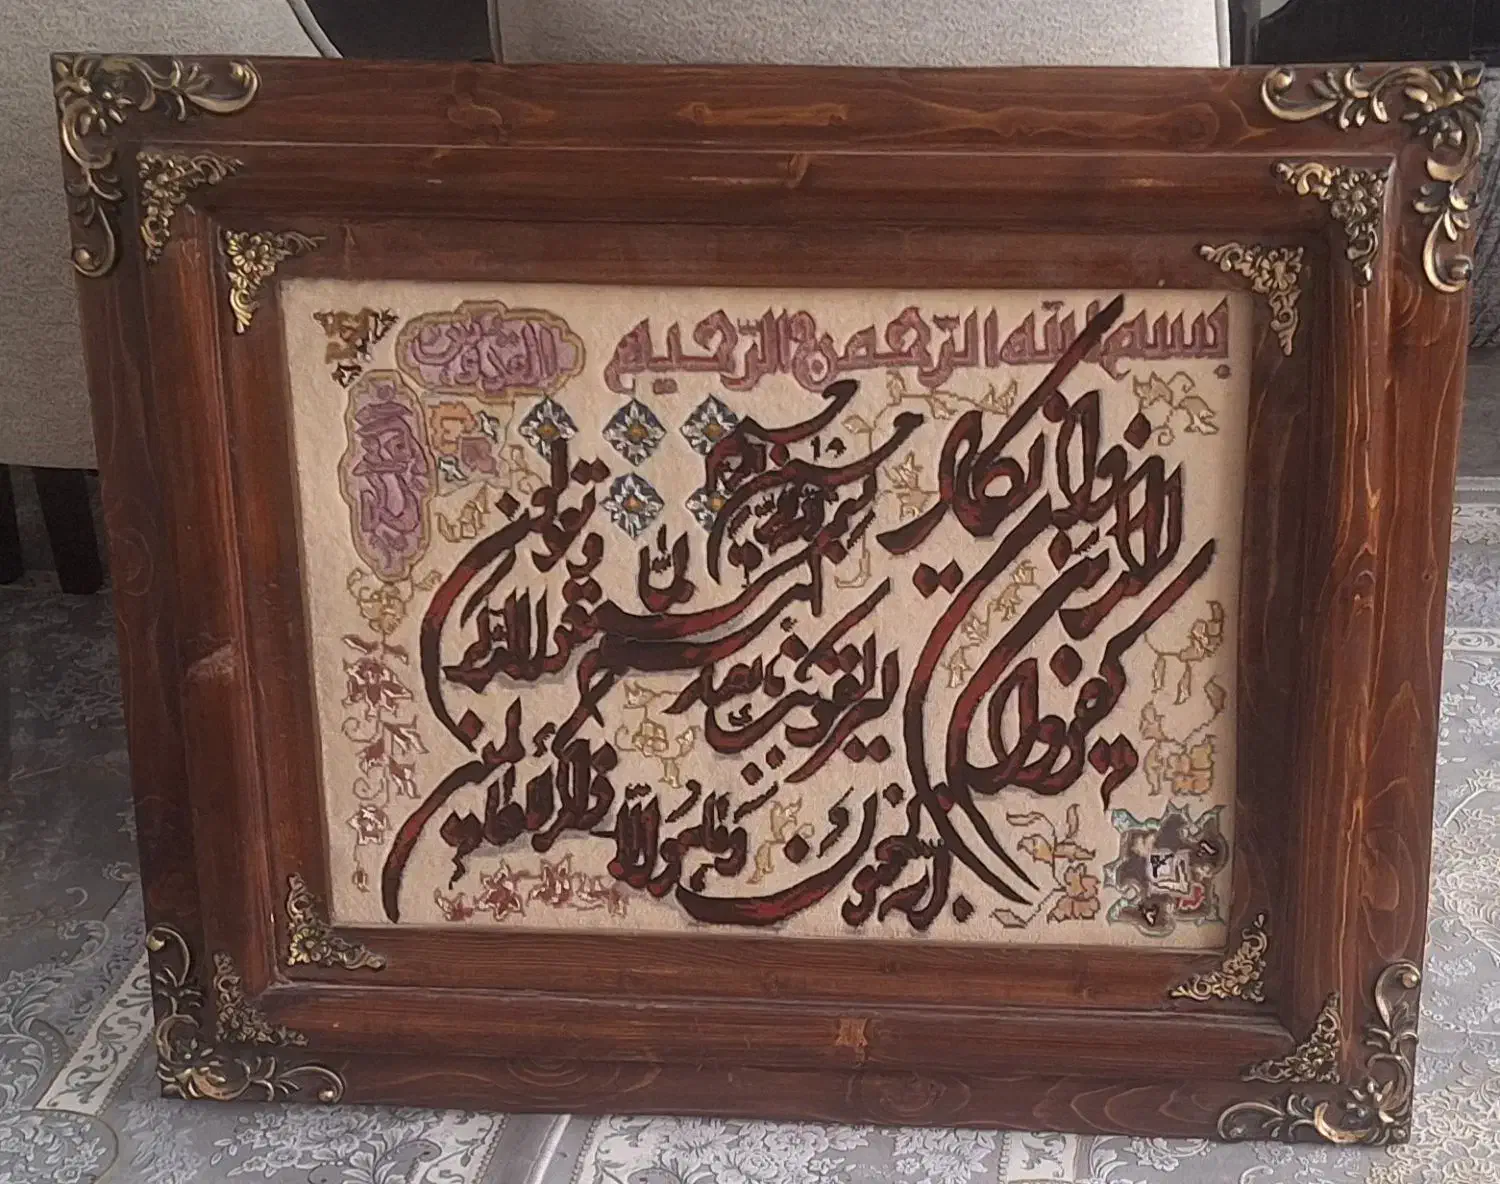 بسم الله الرحمن الرحیم
و ان یکاد الذین
کفروا لیزلقونک بابصارهم
لما سمعوا الذکر و یقولون
انه لمجنون و ما هو الا ذکر للعالمین